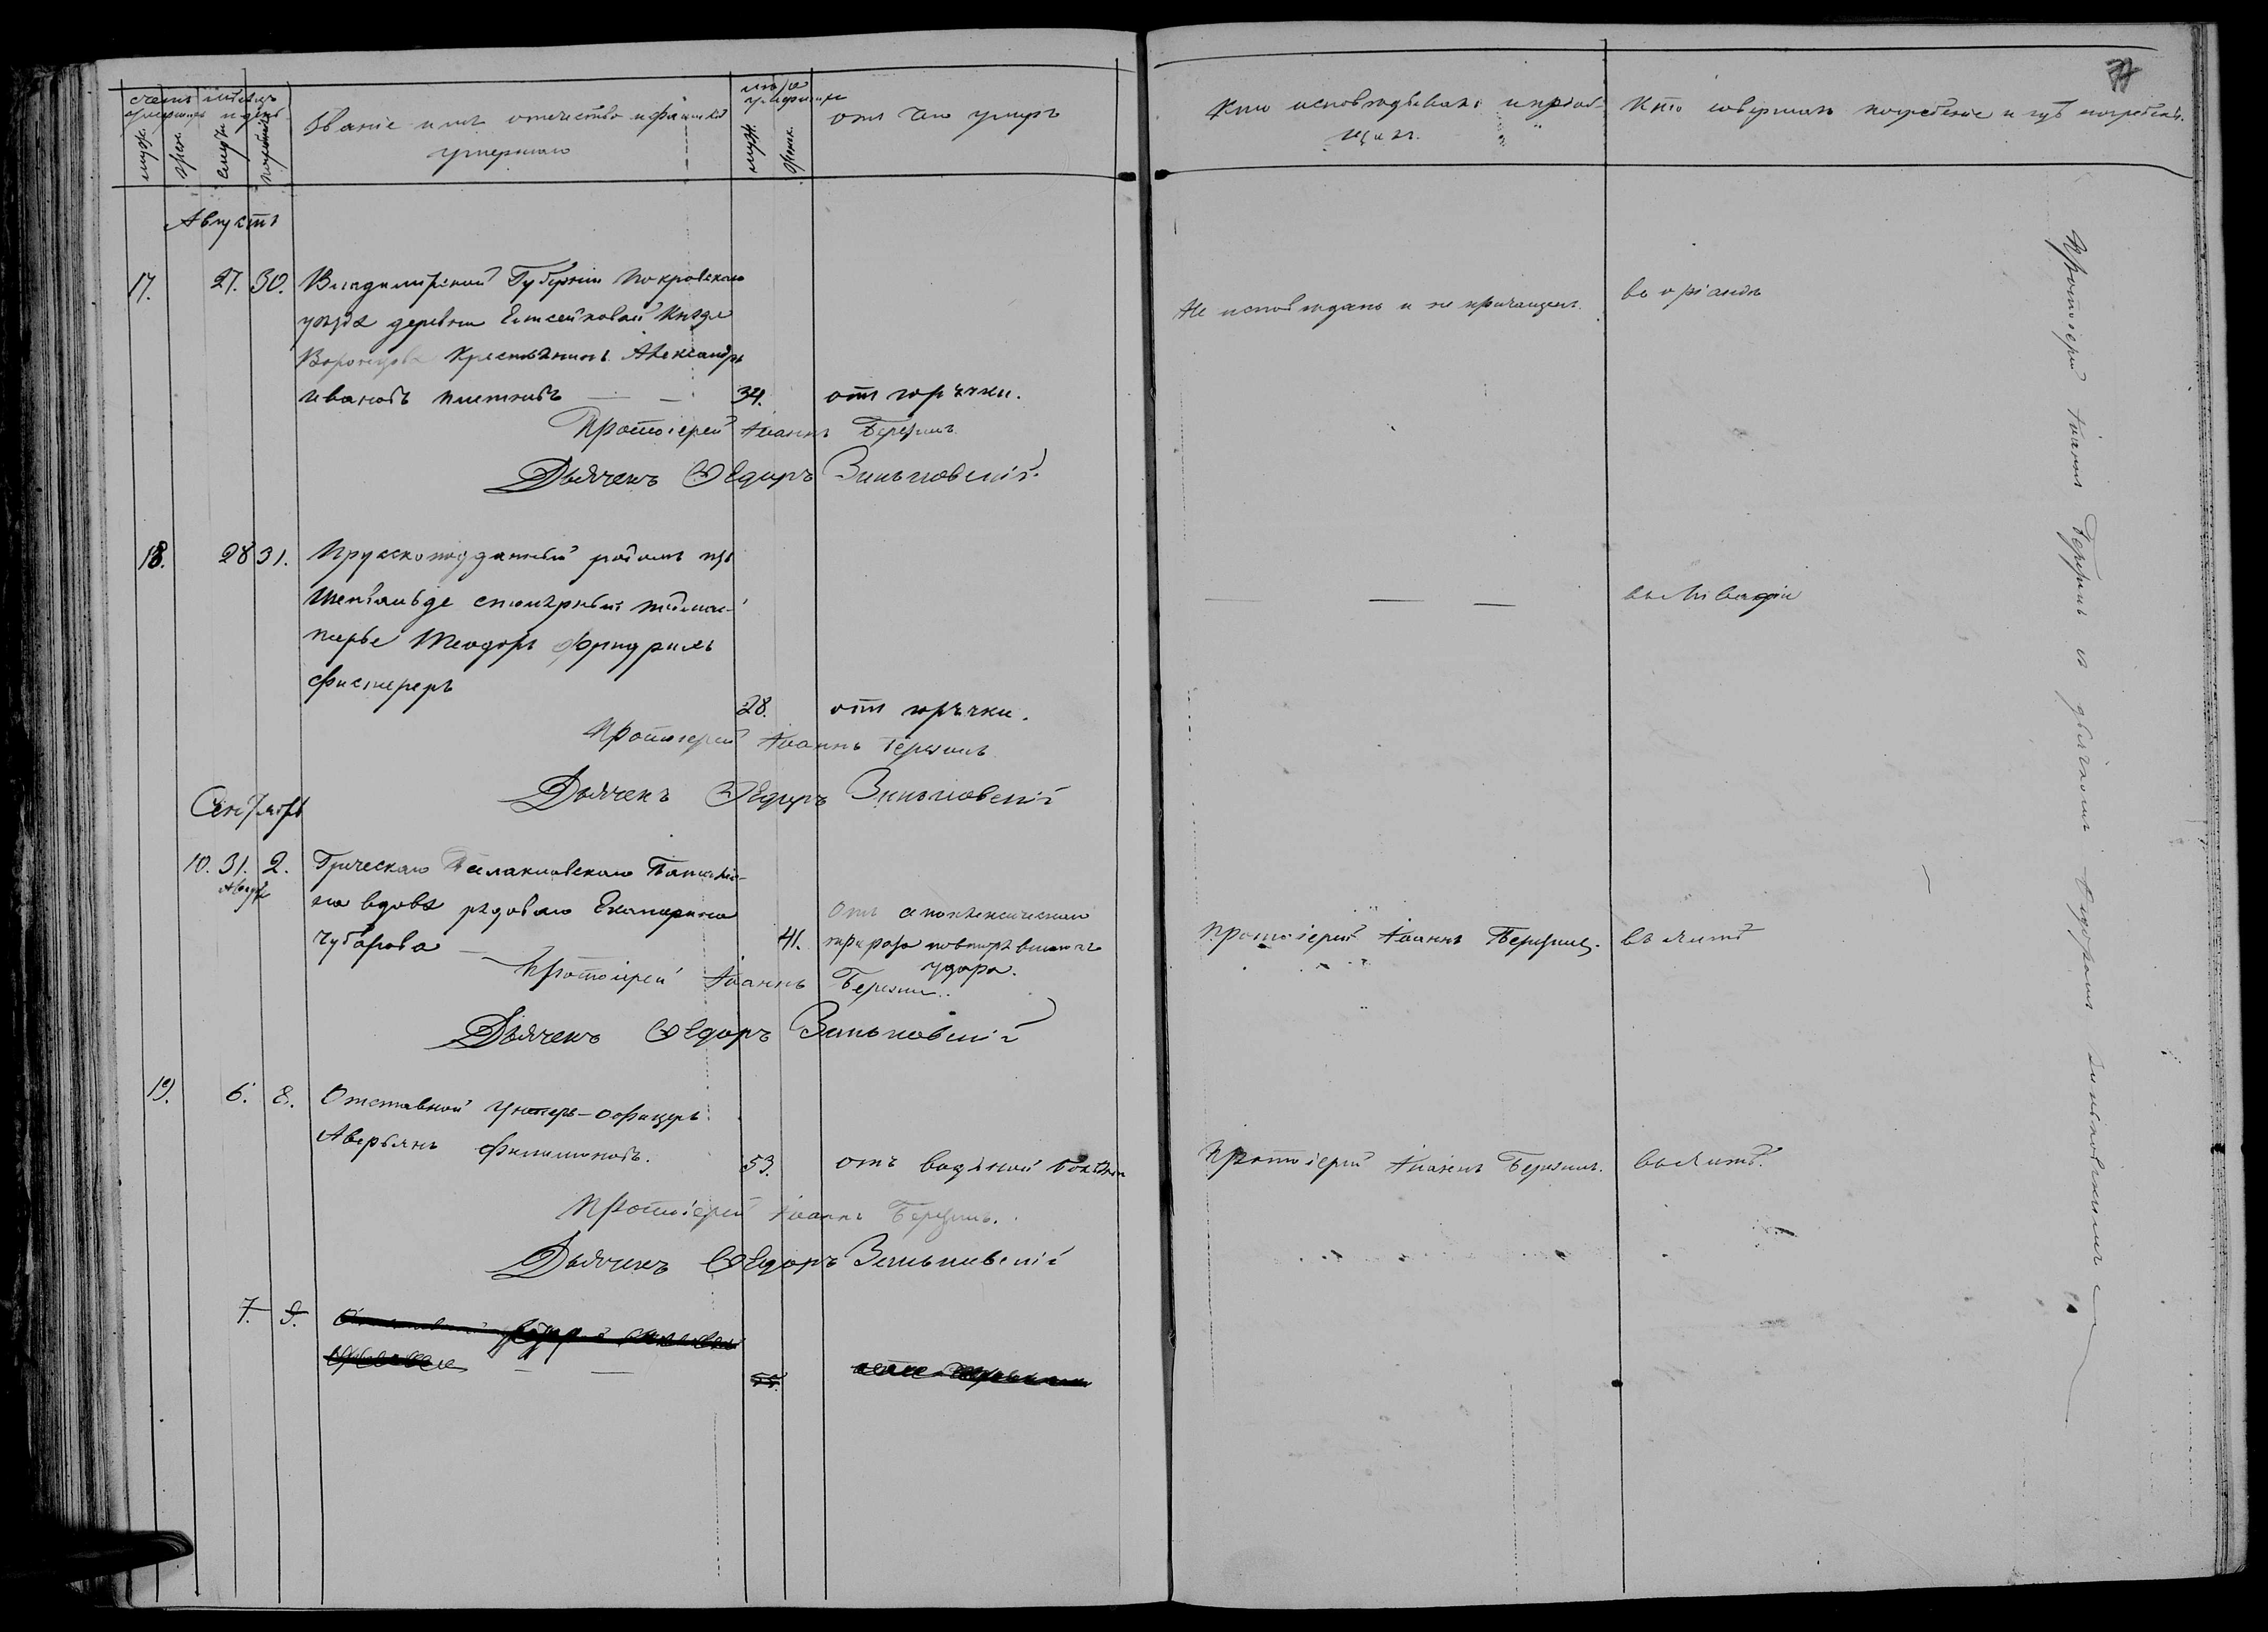 77
счетъ умершихъ
мѣсяцъ и день
Званіе имя отечество и фамилія
умершаго
лѣта умершихъ
отъ чего умеръ
Кто исповѣдывалъ и пріоб-
щалъ.
Кто совершалъ погребеніе и гдѣ погребены.
муж. жен. смерти погребенія
муж. женск.
Августъ
17. 27. 30. Владимірской Губерніи Покровскаго
уѣзда деревни Елисейковой Князя
Воронцова Крестьянинъ Александръ
Ивановъ 34. отъ горячки.
Не исповѣданъ и не причащенъ.
Протоіерей Іоаннъ Березинъ
Дьячекъ Ѳедоръ Зиньковскій.
18. 28 31. Прусскоподданный родомъ изъ
столярный
Теодоръ Фридрихъ
28. отъ горячки.
Протоіерей Іоаннъ Березинъ
Дьячекъ Ѳедоръ Зиньковскій
Сентябрь
10. 31. 2. Греческаго Балаклавскаго Баталіо-
Августа
на вдова рядоваго Екатерина
Чубарова 41.
Отъ апоплексическаго
удара.
Протоіерей Іоаннъ Березинъ. въ Ялтѣ
Протоіерей Іоаннъ Березинъ.
Дьячекъ Ѳедоръ Зиньковскій
19. 6. 8. Отставной Унтеръ-Офицеръ
Аверьянъ Филимоновъ. 53. отъ водяной болѣзни
Протоіерей Іоаннъ Березинъ. въ Ялтѣ.
Протоіерей Іоаннъ Березинъ.
Дьячекъ Ѳедоръ Зиньковскій
7. 9.
55.
Протоіерей Іоаннъ Березинъ съ дьячкомъ Ѳедоромъ Зиньковскимъ